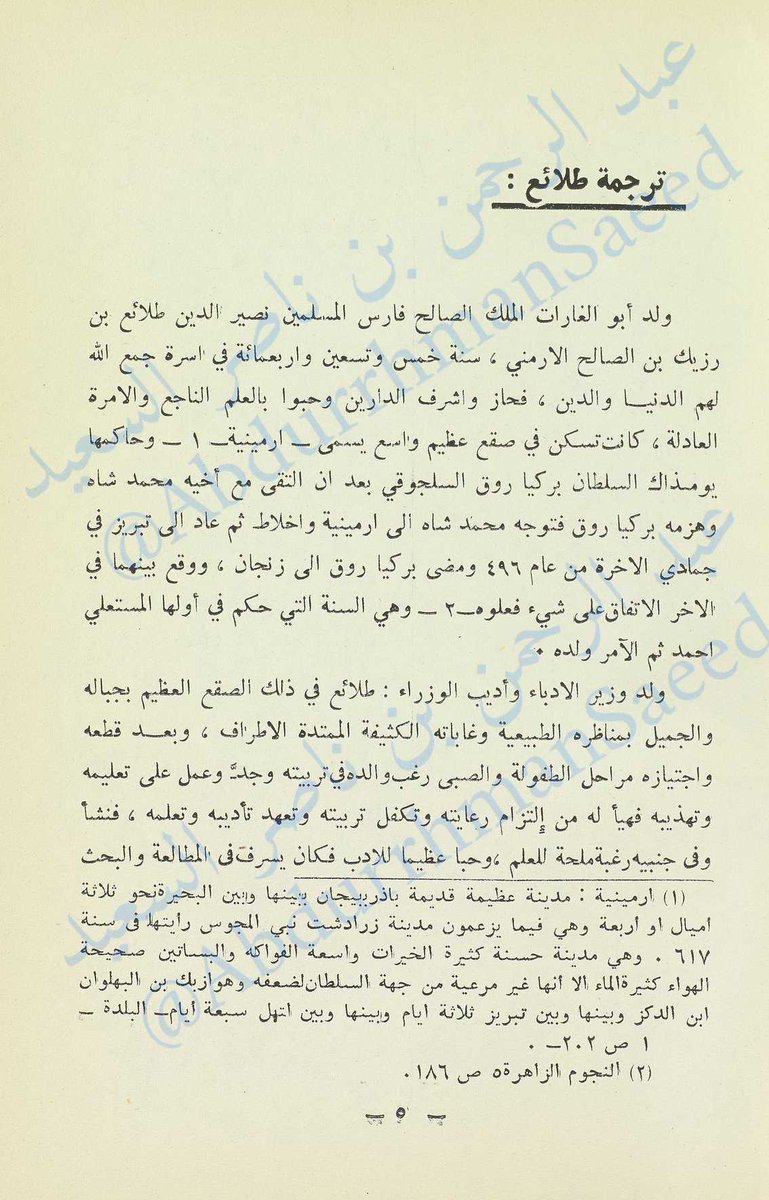 ترجمة طلائع :
ولد أبو الغارات الملك الصالح فارس المسلمين نصير الدين طلائع بن
رزيك بن الصالح الارمني ، سنة خمس وتسعين واربعمائة في اسرة جمع الله
لهم الدنيا والدين ، فحاز واشرف الدارين وحبوا بالعلم الناجع والامرة
العادلة ، كانت تسكن في صقع عظيم واسع يسمى ــ ارمينية ــ ١ ــ وحاكمها
يومذاك السلطان بركيا روق السلجوقي بعد ان التقى مع أخيه محمد شاه
وهزمه بركيا روق فتوجه محمد شاه الى ارمينية واخلاط ثم عاد الى تبريز في
جمادي الاخرة من عام ٤٩٦ ومضى بركيا روق الى زنجان ، ووقع بينهما في
الاخر الاتفاق على شيء فعلوه ــ ٢ ــ وهي السنة التي حكم في أولها المستعلي
احمد ثم الآمر ولده .
ولد وزير الادباء وأديب الوزراء : طلائع في ذلك الصقع العظيم بجباله
والجميل بمناظره الطبيعية وغاباته الكثيفة الممتدة الاطراف ، وبعد قطعه
واجتيازه مراحل الطفولة والصبى رغب والده في تربيته وجدَّ وعمل على تعليمه
وتهذيبه فهيأ له من إلتزام رعايته وتكفل تربيته وتعهد تأديبه وتعلمه ، فنشأ
وفى جنبيه رغبة ملحة للعلم ، وحبا عظيما للادب فكان يسرف فى المطالعة والبحث
(١) ارمينية : مدينة عظيمة قديمة باذربيجان بينها وبين البحيرة نحو ثلاثة
اميال او أربعة وهي فيما يزعمون مدينة زرادشت نبي المجوس رأيتها فى سنة
٦١٧ . وهي مدينة حسنة كثيرة الخيرات واسعة الفواكه والبساتين صحيحة
الهواء كثيرة الماء الا أنها غير مرعية من جهة السلطان لضعفه وهو ازبك بن البهلوان
ابن الدكز وبينها وبين تبريز ثلاثة ايام وبينها وبين اتهل سبعة أيام ــ البلدة ــ
١ ص ٢٠٢ ــ .
(٢) النجوم الزاهرة ٥ ص ١٨٦ .
ــ ٥ ــ
عبد الرحمن بن ناصر السعيد
@AbdurrhmanSaeed
عبد الرحمن بن ناصر السعيد
@AbdurrhmanSaeed